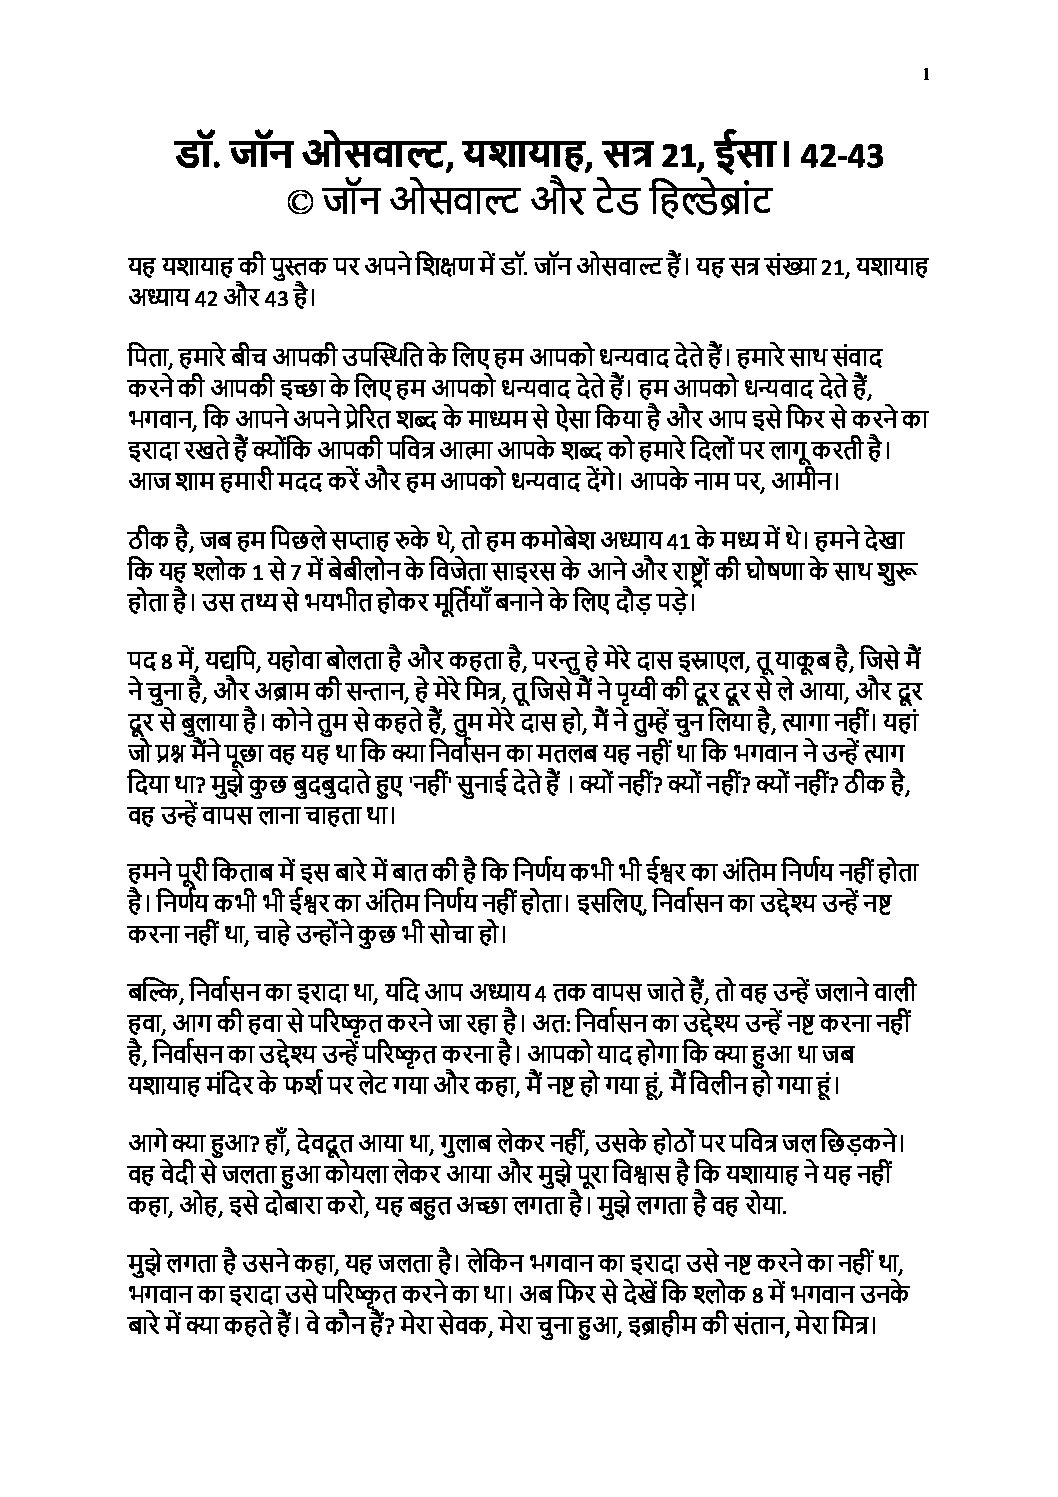 1
डॉ. जॉन ओसवाल्ट, यशायाह, सत्र 21, ईसा। 42-43
© जॉन ओसवाल्ट और टेड हिल्डेब्रांट
यह यशायाह की पुस्तक पर अपने शिक्षण में डॉ. जॉन ओसवाल्ट हैं। यह सत्र संख्या 21, यशायाह
अध्याय 42 और 43 है।
पिता, हमारे बीच आपकी उपस्थिति के लिए हम आपको धन्यवाद देते हैं। हमारे साथ संवाद
करने की आपकी इच्छा के लिए हम आपको धन्यवाद देते हैं। हम आपको धन्यवाद देते हैं,
भगवान, कि आपने अपने प्रेरित शब्द के माध्यम से ऐसा किया है और आप इसे फिर से करने का
इरादा रखते हैं क्योंकि आपकी पवित्र आत्मा आपके शब्द को हमारे दिलों पर लागू करती है।
आज शाम हमारी मदद करें और हम आपको धन्यवाद देंगे। आपके नाम पर, आमीन।
ठीक है, जब हम पिछले सप्ताह रुके थे, तो हम कमोबेश अध्याय 41 के मध्य में थे। हमने देखा
कि यह श्लोक 1 से 7 में बेबीलोन के विजेता साइरस के आने और राष्ट्रों की घोषणा के साथ शुरू
होता है। उस तथ्य से भयभीत होकर मूर्तियाँ बनाने के लिए दौड़ पड़े।
पद 8 में, यद्यपि, यहोवा बोलता है और कहता है, परन्तु हे मेरे दास इस्राएल, तू याकूब है, जिसे मैं
ने चुना है, और अब्राम की सन्तान, हे मेरे मित्र, तू जिसे मैं ने पृय्वी की दूर दूर से ले आया, और दूर
दूर से बुलाया है। कोने तुम से कहते हैं, तुम मेरे दास हो, मैं ने तुम्हें चुन लिया है, त्यागा नहीं। यहां
जो प्रश्न मैंने पूछा वह यह था कि क्या निर्वासन का मतलब यह नहीं था कि भगवान ने उन्हें त्याग
दिया था? मुझे कुछ बुदबुदाते हुए 'नहीं' सुनाई देते हैं । क्यों नहीं? क्यों नहीं? क्यों नहीं? ठीक है,
वह उन्हें वापस लाना चाहता था।
हमने पूरी किताब में इस बारे में बात की है कि निर्णय कभी भी ईश्वर का अंतिम निर्णय नहीं होता
है। निर्णय कभी भी ईश्वर का अंतिम निर्णय नहीं होता। इसलिए, निर्वासन का उद्देश्य उन्हें नष्ट
करना नहीं था, चाहे उन्होंने कुछ भी सोचा हो।
बल्कि, निर्वासन का इरादा था, यदि आप अध्याय 4 तक वापस जाते हैं, तो वह उन्हें जलाने वाली
हवा, आग की हवा से परिष्कृत करने जा रहा है। अत: निर्वासन का उद्देश्य उन्हें नष्ट करना नहीं
है, निर्वासन का उद्देश्य उन्हें परिष्कृत करना है। आपको याद होगा कि क्या हुआ था जब
यशायाह मंदिर के फर्श पर लेट गया और कहा, मैं नष्ट हो गया हूं, मैं विलीन हो गया हूं।
आगे क्या हुआ? हाँ, देवदूत आया था, गुलाब लेकर नहीं, उसके होठों पर पवित्र जल छिड़कने।
वह वेदी से जलता हुआ कोयला लेकर आया और मुझे पूरा विश्वास है कि यशायाह ने यह नहीं
कहा, ओह, इसे दोबारा करो, यह बहुत अच्छा लगता है। मुझे लगता है वह रोया.
मुझे लगता है उसने कहा, यह जलता है। लेकिन भगवान का इरादा उसे नष्ट करने का नहीं था,
भगवान का इरादा उसे परिष्कृत करने का था। अब फिर से देखें कि श्लोक 8 में भगवान उनके
बारे में क्या कहते हैं। वे कौन हैं? मेरा सेवक, मेरा चुना हुआ, इब्राहीम की संतान, मेरा मित्र।